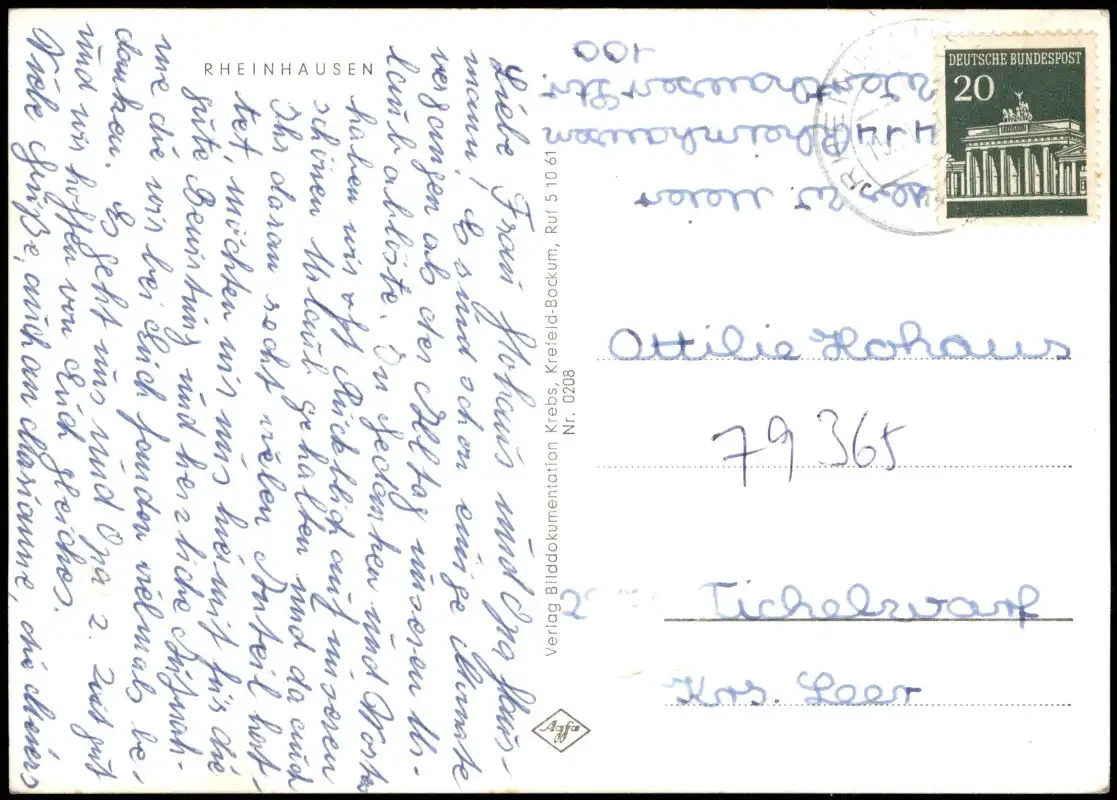 RHEINHAUSEN
Liebe Frau Hohaus und Opa Haus-
mann! Es sind schon einige Monate
vergangen als der Alltag unseren Ur-
laub ablöste. In Gedanken und Worten
haben wir oft Rückblick auf unseren
schönen Urlaub gehalten und da auch
Ihr daran recht vielen Anteil hat-
tet, möchten wir uns hiermit für die
gute Bewirtung und herzliche Aufnah-
me die wir bei Euch fanden vielmals be-
danken. Es geht uns und Opa z. Zeit gut
und wir hoffen von Euch gleiches.
Viele Grüße, auch an Marianne, die Meiers
Verlag Bilddokumentation Krebs, Krefeld-Bockum, Ruf 5 10 61
Nr. 0208
Agfa
W. Meier
414 Rheinhausen
Werthauser Str.
100
DEUTSCHE BUNDESPOST
20
Ottilie Hohaus
79365
2
Tichelwarf
Krs. Leer